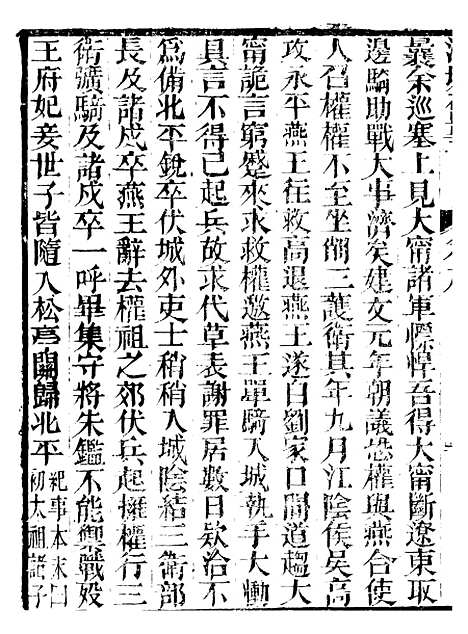 曩余巡塞上見大甯諸軍慓悍吾得大甯斷遼東取
邊騎助戰大事濟矣建文元年朝議恐權與燕合使
人召權權不至坐削三護衛其年九月江陰侯吳高
攻永平燕王往救高退燕王遂自劉家口間道趨大
甯詭言窮蹙來求救權邀燕王單騎入城執手大慟
具言不得已起兵故求代草表謝罪居數日欵洽不
爲備北平銳卒伏城外吏士稍稍入城陰結三衛部
長及諸戍卒燕王辭去權祖之郊伏兵起擁權行三
衛彍騎及諸戍卒一呼畢集守將朱鑑不能禦戰歿
王府妃妾世子皆隨入松亭關歸北平紀事本末曰
初太祖諸子